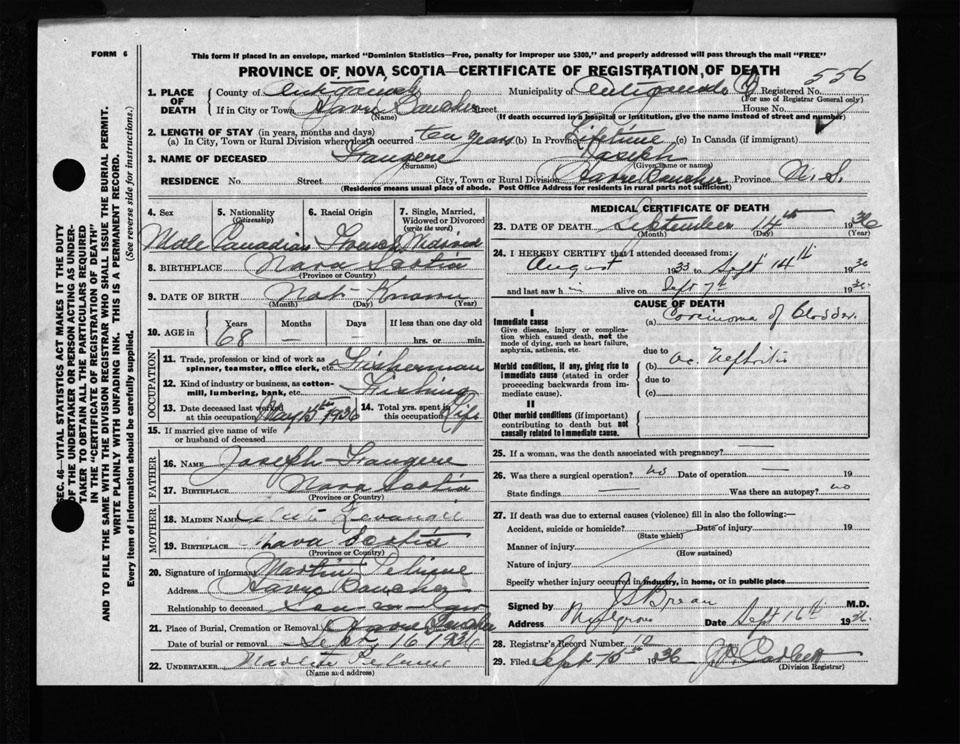 FORM 6
This form if placed in an envelope, marked "Dominion Statistics—Free, penalty for improper use $300," and properly addressed will pass through the mail "FREE"
PROVINCE OF NOVA SCOTIA—CERTIFICATE OF REGISTRATION OF DEATH
556
1. PLACE OF DEATH County of Antigonish Municipality of Antigonish Registered No.
(For use of Registrar General only)
If in City or Town Havre Boucher Street House No.
(Name) (If death occurred in a hospital or institution, give the name instead of street and number)
2. LENGTH OF STAY (in years, months and days)
(a) In City, Town or Rural Division where death occurred ten years (b) In Province Lifetime (c) In Canada (if immigrant)
3. NAME OF DECEASED Fougere Joseph
(Surname) (Given name or names)
RESIDENCE No. Street City, Town or Rural Division Havre Boucher Province N.S.
(Residence means usual place of abode. Post Office Address for residents in rural parts not sufficient)
4. Sex 5. Nationality (Citizenship) 6. Racial Origin 7. Single, Married, Widowed or Divorced (write the word)
Male Canadian French Widowed
8. BIRTHPLACE Nova Scotia
(Province or Country)
9. DATE OF BIRTH Not Known
(Month) (Day) (Year)
10. AGE in Years Months Days If less than one day old
68 — — hrs. or min.
OCCUPATION
11. Trade, profession or kind of work as spinner, teamster, office clerk, etc. Fisherman
12. Kind of industry or business, as cotton-mill, lumbering, bank, etc. Fishing
13. Date deceased last worked at this occupation May 1936 14. Total yrs. spent in this occupation Life
15. If married give name of wife or husband of deceased
FATHER
16. NAME Joseph Fougere
17. BIRTHPLACE Nova Scotia
(Province or Country)
MOTHER
18. MAIDEN NAME
19. BIRTHPLACE Nova Scotia
(Province or Country)
20. Signature of informant Martin
Address Havre Boucher
Relationship to deceased Son-in-law
21. Place of Burial, Cremation or Removal Havre Boucher
Date of burial or removal Sept 16 1936
22. UNDERTAKER Martin
(Name and address)
MEDICAL CERTIFICATE OF DEATH
23. DATE OF DEATH September 14th 1936
(Month) (Day) (Year)
24. I HEREBY CERTIFY that I attended deceased from:
August 1933 to Sept 14th 1936
and last saw him alive on Sept 7th 1936
CAUSE OF DEATH
I
Immediate cause (a) Carcinoma of Bladder
Give disease, injury or complication which caused death, not the mode of dying, such as heart failure, asphyxia, asthenia, etc.
due to
Morbid conditions, if any, giving rise to immediate cause (stated in order proceeding backwards from immediate cause). (b) ac. Nephritis
due to
(c)
II
Other morbid conditions (if important) contributing to death but not causally related to immediate cause.
25. If a woman, was the death associated with pregnancy? —
26. Was there a surgical operation? no Date of operation — 19
State findings — Was there an autopsy? no
27. If death was due to external causes (violence) fill in also the following:—
Accident, suicide or homicide? Date of injury 19
(State which)
Manner of injury
(How sustained)
Nature of injury
Specify whether injury occurred in industry, in home, or in public place
Signed by M.D.
Address Mulgrave Date Sept 16th 1936
28. Registrar's Record Number 10
29. Filed Sept 1936
(Division Registrar)
SEC. 46—VITAL STATISTICS ACT MAKES IT THE DUTY
OF THE UNDERTAKER OR PERSON ACTING AS UNDER-
TAKER TO OBTAIN ALL THE PARTICULARS REQUIRED
IN THE "CERTIFICATE OF REGISTRATION OF DEATH"
AND TO FILE THE SAME WITH THE DIVISION REGISTRAR WHO SHALL ISSUE THE BURIAL PERMIT.
WRITE PLAINLY WITH UNFADING INK. THIS IS A PERMANENT RECORD.
Every item of information should be carefully supplied. (See reverse side for instructions.)